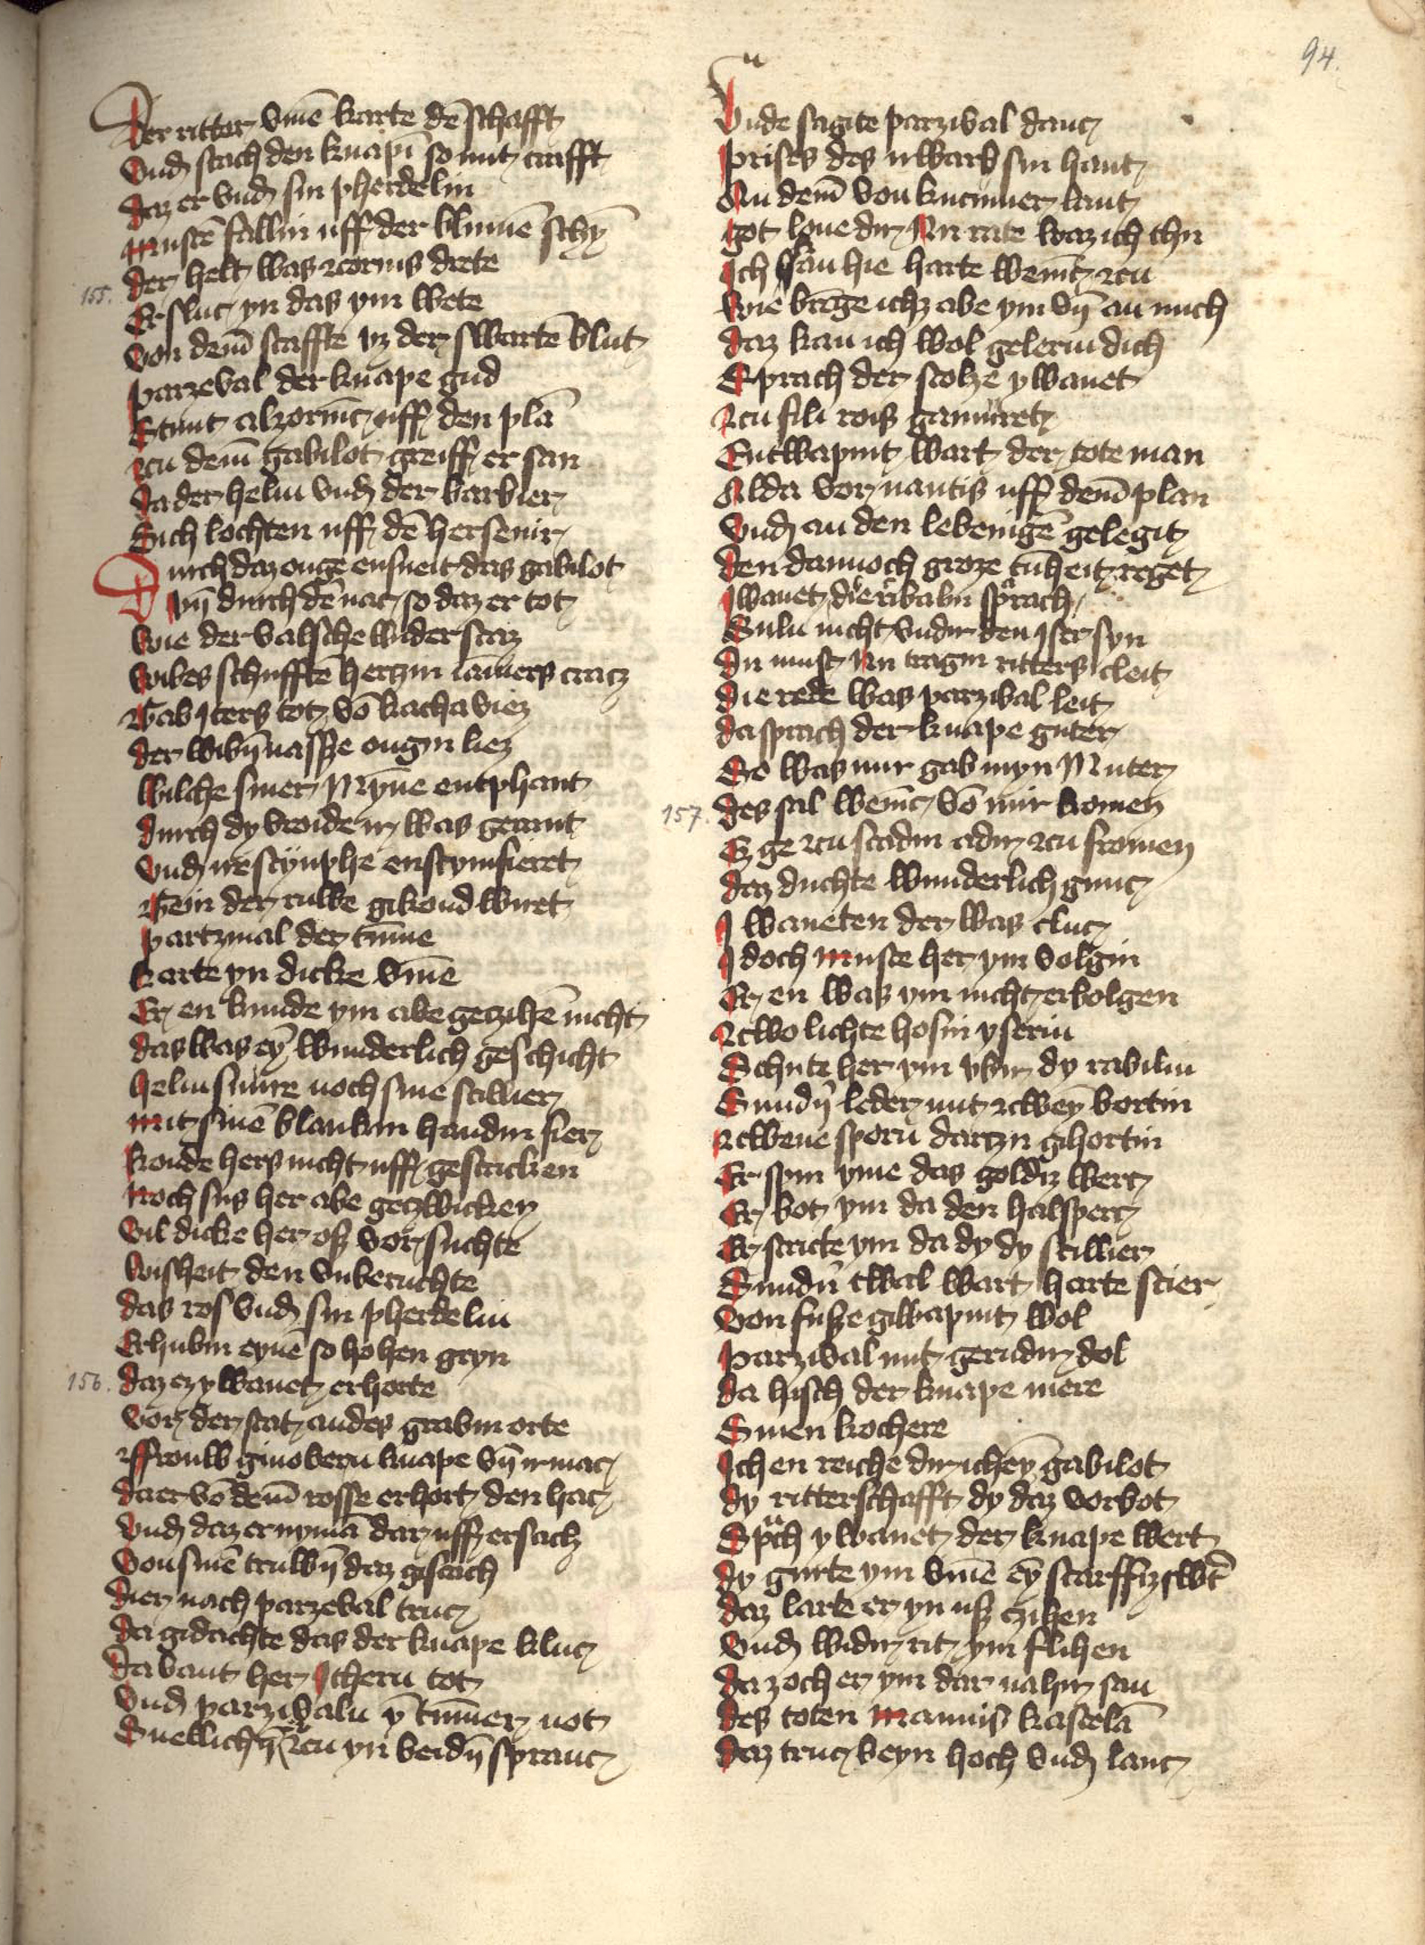 94.
Der ritter vm̄e karte dē schafft
Vnd stach den knapī so mit crafft
Daz er vnd sin pherdelin
Mustē fallin uff der blumē schȳ
Der helt was zcornis drete
155.
Er sluc yn das ym wete
Von dem̄ scaffte vz der swartē blut
Parzeval der knape gud
Stunt alzornīc uff den plā
Zcu dem̄ gabilot greiff er san
Da der helm vnd der barbier
Sich lochten uff dē hersenir
Durch daz ouge ensneit das gabilot
Vn̄ durch dē nac so daz er tot
Viel der valsche widersatz
Wibes schufftē hertzin iamers cratz
Gab Iters tot vō kachaviez
Der wibn̄ nasse ougin liez
Wilche siner Mȳne entphant
Durch dy vroide ir was gerant
Vnd ir scȳnphe enscymfieret
Gein der ruwe gikondwiret
Partzival der tūme
Karte yn dicke vm̄e
Er en kunde ym abe getzihē nicht
Das was eȳ wunderlich geschicht
Helm snure noch sine scillier
Mit sinē blankin handin sier
Konde hers nicht uff gestricken
Noch sus her abe getzwicken
Vil dicke her oß vorsuchte
Wisheit den vnberuchte
Das ros vnd sin pherdelin
Erhubin eynē so hohen gryn
156.
Daz ez ywanet erhorte
Vor der stat an des grabin orte
Frouw ginovern knape vn̄ ir mac
Da er vō dem̄ rosse erhort den hac
Vnd daz er nymā dar uff ersach
Von sinē truwn̄ daz gescach
Dier nach parzeval truc
Da gidachte das der knape kluc
Da vant her Ithern tot
Vnd parziwaln ȳ tūmer not
Snellichn̄ er zcu yn beidn̄ spranc
Vnde sagite parzival danc
Prises des irwarb sin hant
An dem̄ von kucumer lant
Got lone dir Nu rate waz ich thu
Ich kan hie harte wenīc zcu
Wie brēge ichz abe ym vn̄ an mich
Daz kan ich wol gelerin dich
Sprach der stolze ywanet
Zcu fili rois gamuret
Entwapint wart der tote man
Alda vor nantis uff dem̄ plan
Vnd an den lebenigē gelegit
Den dannoch groze tūheit reget
Iwanet die ribalin sprach
Suln nicht vndir den iser syn
Du must Nu tragin ritters cleit
Die rede was parzival leit
Da sprach der knape guter
So was mir gab myn Muter
157.
Des sal wenīc vō mir komen
Ez ge zcu scadin adir zcu fromen
Daz duchte wunderlich gnuc
Iwaneten der was cluc
Idoch muste her ym volgin
Er en was ym nicht erbolgen
Zcwo lichte hosin yserin
Schute her ym vbir dy rabilin
Sundn̄ leder mit zcwey bortin
Zcwene sporn dartzu gihortin
Er spin yme das goldiz werc
Er bot ym da den halsperc
Er stricte ym da dy dy scillier
Sundn̄ twal wart harte scier
Von fuße giwapint wol
Parzival mit gerndir dol
Da hisch der knape mere
Sinen kochere
Ich en reiche dir ichey gabilot
Dy ritterschafft dy daz vorbot
Sprach ywanet der knape wert
Dy gurte ym vm̄e eȳ scarffiz swert
Daz larte er yn uß tzihen
Vnd widir rit ym flihen
Da zoch er ym dar nahir san
Des toten Mannis kastelā
Daz truc beyn hoch vnd lanc